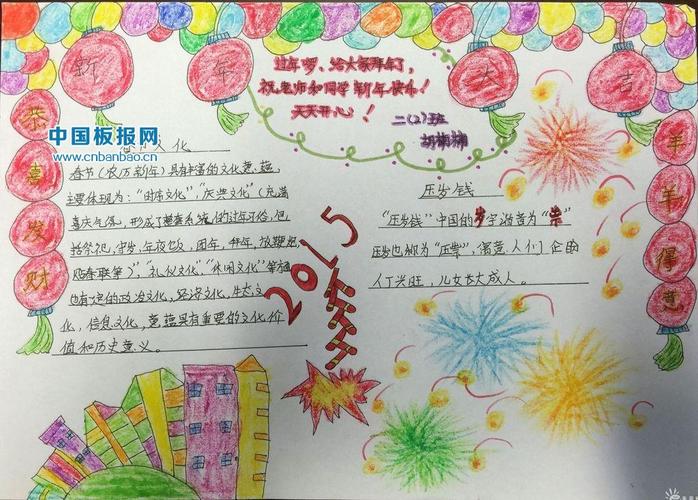 新年大吉
过年啰、给大家拜年了,
祝老师和同学新年快乐!
天天开心!
二(2)班
恭喜发财
中国板报网
www.cnbanbao.cn
文化
春节(农历新年)具有丰富的文化意蕴,
主要体现为:"时序文化","庆典文化"(充满
喜庆气氛,形成了整套系统的过年习俗,包
括祭祀,守岁,年夜饭,团年,拜年,放鞭炮
贴春联等)","礼仪文化","休闲文化"等
也有一定的政治文化,经济文化,生态文
化,信息文化,意蕴具有重要的文化价
值和历史意义。
压岁钱
"压岁钱"中国的岁字谐音为"祟"
压岁也即为"压祟",寓意人们企盼
人丁兴旺,儿女长大成人。
2015
羊羊得意